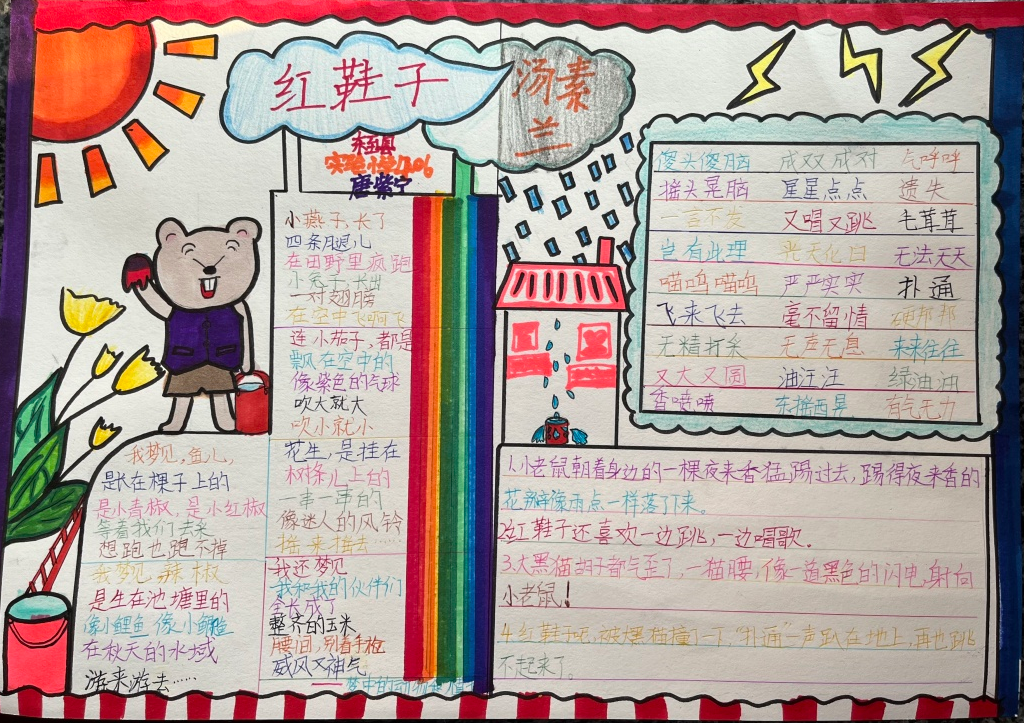 红鞋子
汤素
兰
实验小学
唐紫宁
小燕子,长了
四条腿儿
在田野里疯跑
小兔子,长出
一对翅膀
在空中飞啊飞
连小茄子,都是
飘在空中的
像紫色的气球
吹大就大
吹小就小
花生,是挂在
树条儿上的
一串一串的
像迷人的风铃
摇来摇去……
我还梦见
我和我的伙伴们
全长成了
整齐的玉米
腰间,别着手枪
威风又神气
梦中的动物和植物
我梦见,鱼儿,
是长在棵子上的
是小青椒,是小红椒
等着我们去采
想跑也跑不掉
我梦见辣椒
是生在池塘里的
像小鲤鱼 像小鳝鱼
在秋天的水域
游来游去……
傻头傻脑 成双成对 气呼呼
摇头晃脑 星星点点 遗失
一言不发 又唱又跳 毛茸茸
岂有此理 光天化日 无法无天
喵呜喵呜 严严实实 扑通
飞来飞去 毫不留情 硬邦邦
无精打采 无声无息 来来往往
又大又圆 油汪汪 绿油油
香喷喷 东摇西晃 有气无力
1.小老鼠朝着身边的一棵夜来香猛踢过去,踢得夜来香的
花瓣像雨点一样落了下来。
2.红鞋子还喜欢一边跳,一边唱歌.
3.大黑猫胡子都气歪了,一猫腰,像一道黑色的闪电,射向
小老鼠!
4.红鞋子呢,被黑猫撞了一下,"扑通"一声趴在地上,再也跳
不起来了。